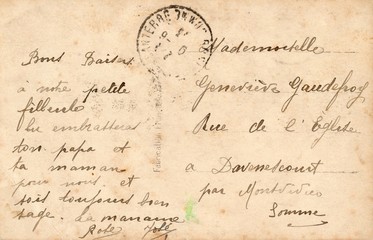 Bons Baisers
à notre petite
filleule
tu embrassera
ton papa et
ta maman
pour nous et
sois toujours bon
sage. La marraine
NANTERRE
Fabrication Française
a Mademoiselle
Geneviève Gaudefroy
Rue de l'Eglise
a Davenescourt
par Montdidier
Somme